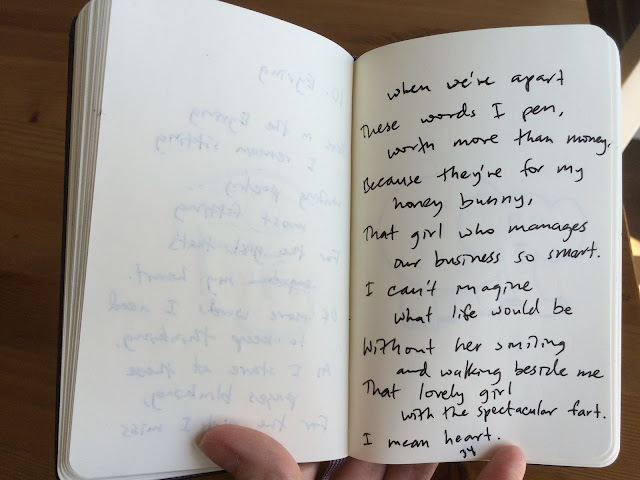 when we're apart
These words I pen,
worth more than money.
Because they're for my
honey bunny,
That girl who manages
our business so smart.
I can't imagine
what life would be
Without her smiling
and walking beside me
That lovely girl
with the spectacular fart.
I mean heart.
34